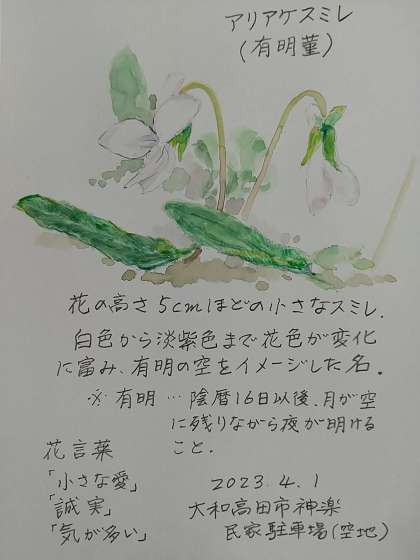 アリアケスミレ
(有明菫)
花の高さ5cmほどの小さなスミレ.
白色から淡紫色まで花色が変化
に富み、有明の空をイメージした名.
※ 有明 … 陰暦16日以後、月が空
に残りながら夜が明ける
こと.
花言葉
「小さな愛」
「誠実」
「気が多い」
2023.4.1
大和高田市神楽
民家駐車場(空地)